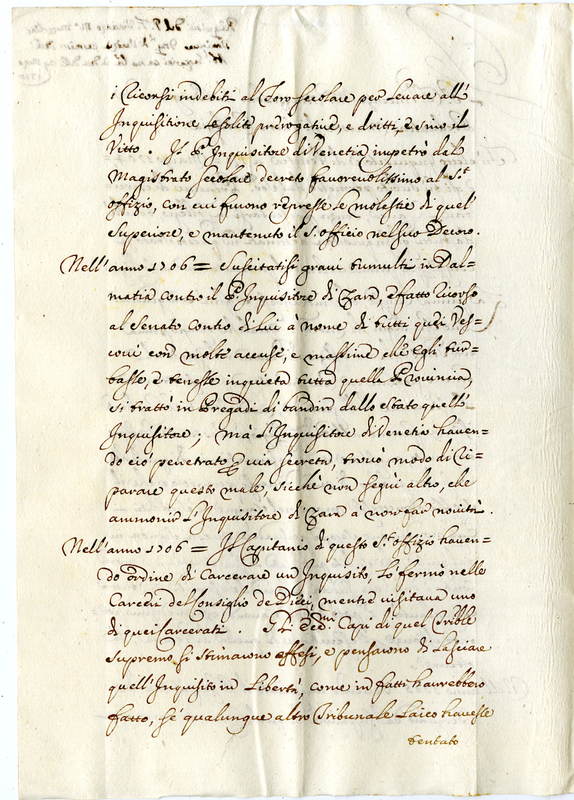 i Ricorsi indebiti al Foro secolare per levare all'
Inquisitione le solite prerogative, e dritti, e sino il
Vitto. Il P. Inquisitore di Venetia impetrò dal
Magistrato secolare decreto favorevolissimo al S.t
offizio, con cui furono represse le molestie di quel
Superiore, e mantenuto il S. officio nel suo Decoro.
Nell'anno 1706 = Suscitatisi gravi tumulti in Dal=
matia contro il P. Inquisitore di Zara, e fatto Ricorso
al Senato contro di Lui à nome di tutti quei Ves=
covi con molte accuse, e massime che egli tur=
basse, e tenesse inquieta tutta quella Provincia,
si trattò in Pregadi di bandir dallo stato quell'
Inquisitore; mà l'Inquisitore di Venetia haven=
do ciò penetrato p via secreta, trovò modo di Ri=
parare questo male, sicchè non seguì altro, che
ammonir l'Inquisitore di Zara à non far novità.
Nell'anno 1706 = Il Capitanio di questo S.t offizio haven=
do ordine di Carcerare un Inquisito, lo fermò nelle
Carceri del Consiglio de Dieci, mentre visitava uno
di quei Carcerati. Gl' Ecc.mi Capi di quel Trible
Supremo si stimarono offesi, e pensarono di lasciare
quell'Inquisito in Libertà, come in fatti haurebbero
fatto, se qualunque altro Tribunale Laico havesse
tentato